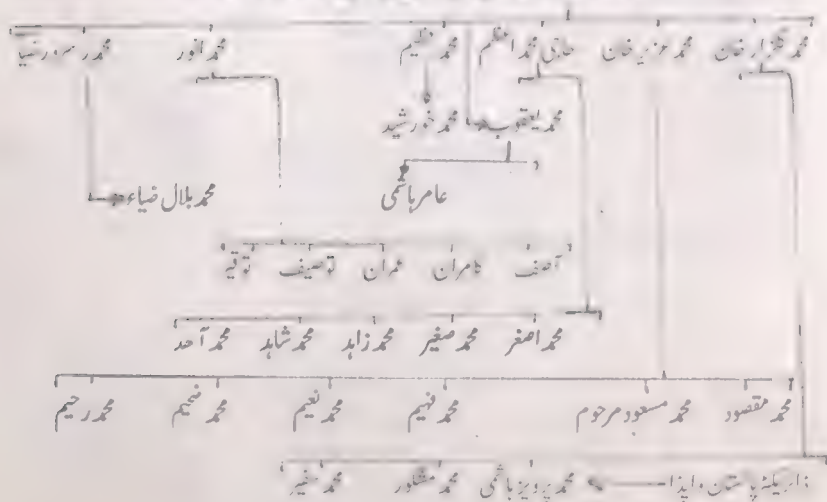 محمد گلزار خان محمد عزیز خان حاجی محمد اعظم محمد عظیم محمد انور محمد سرور ضیاء
محمد یعقوب محمد خورشید
عامر ہاشمی محمد بلال ضیاء
آصف کامران عمران توصیف توقیر
محمد اصغر محمد صغیر محمد زاہد محمد شاہد محمد آحد
محمد مقصود محمد مسعود مرحوم محمد فہیم محمد نعیم محمد ضمیم محمد رحیم
پاکستان واپڈا محمد پرویز ہاشمی محمد مشکور محمد منیر